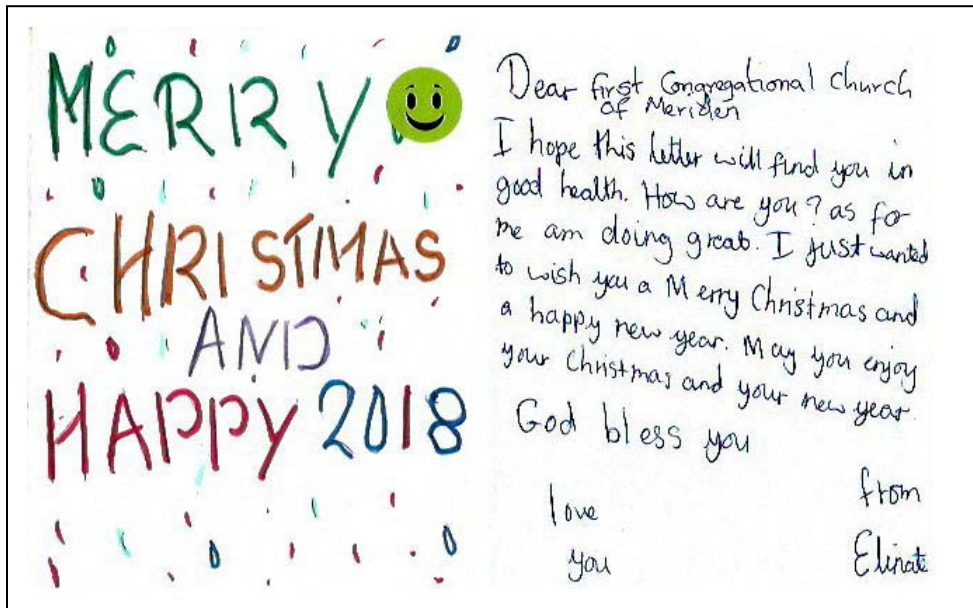 MERRY
CHRISTMAS
AND
HAPPY 2018
Dear first Congregational church
of Meriden
I hope this letter will find you in
good health. How are you? as for
me am doing great. I just wanted
to wish you a Merry Christmas and
a happy new year. May you enjoy
your Christmas and your new year.
God bless you
love
you
from
Elinati